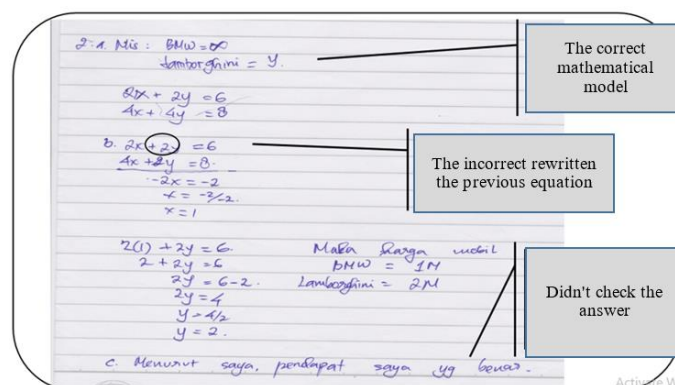 2. a. Mis : BMW = x
Lamborghini = y.
2x + 2y = 6
4x + 4y = 8
b. 2x + 2y = 6
4x + 2y = 8.
-2x = -2
x = -2/-2
x = 1
2(1) + 2y = 6.
2 + 2y = 6
2y = 6-2.
2y = 4
y = 4/2
y = 2.
Maka harga mobil
BMW = 1M
Lamborghini = 2M
c. Menurut saya, pendapat saya yg benar.
The correct
mathematical
model
The incorrect rewritten
the previous equation
Didn't check the
answer
Activate W